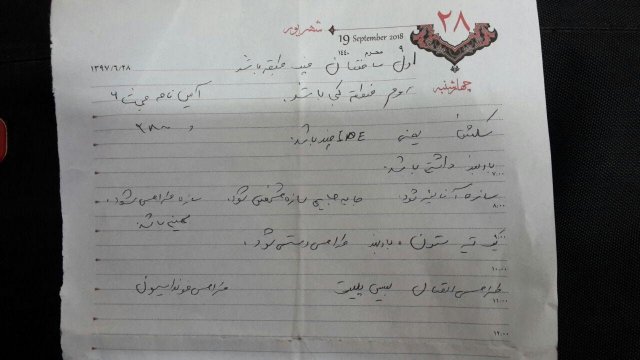 ۲۸
شهریور
19 September 2018
۹ محرم ۱۴۴۰
۱۳۹۷/۶/۲۸
چهارشنبه
اول ساختمان چند طبقه باشد
دوم منطقه کجا باشد. آیین نامه مبحث ۶
و ۲۸۰۰
سکشن یعنی IPE چند باشد.
بادبند داشته باشد.
۷:۰۰
سازه آنالیز شود جابجایی سازه مشخص شود. سازه طراحی شود.
۸:۰۰
یک تیر ستون و بادبند طراحی دستی شود.
۹:۰۰
۱۰:۰۰
طراحی اتصال بیس پلیت طراحی فونداسیون
۱۱:۰۰
۱۲:۰۰